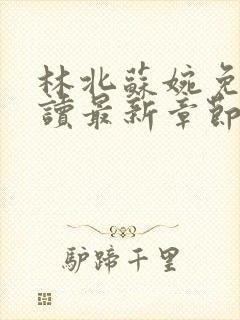 林北蘇婉免
讀最新章節
驢蹄千里